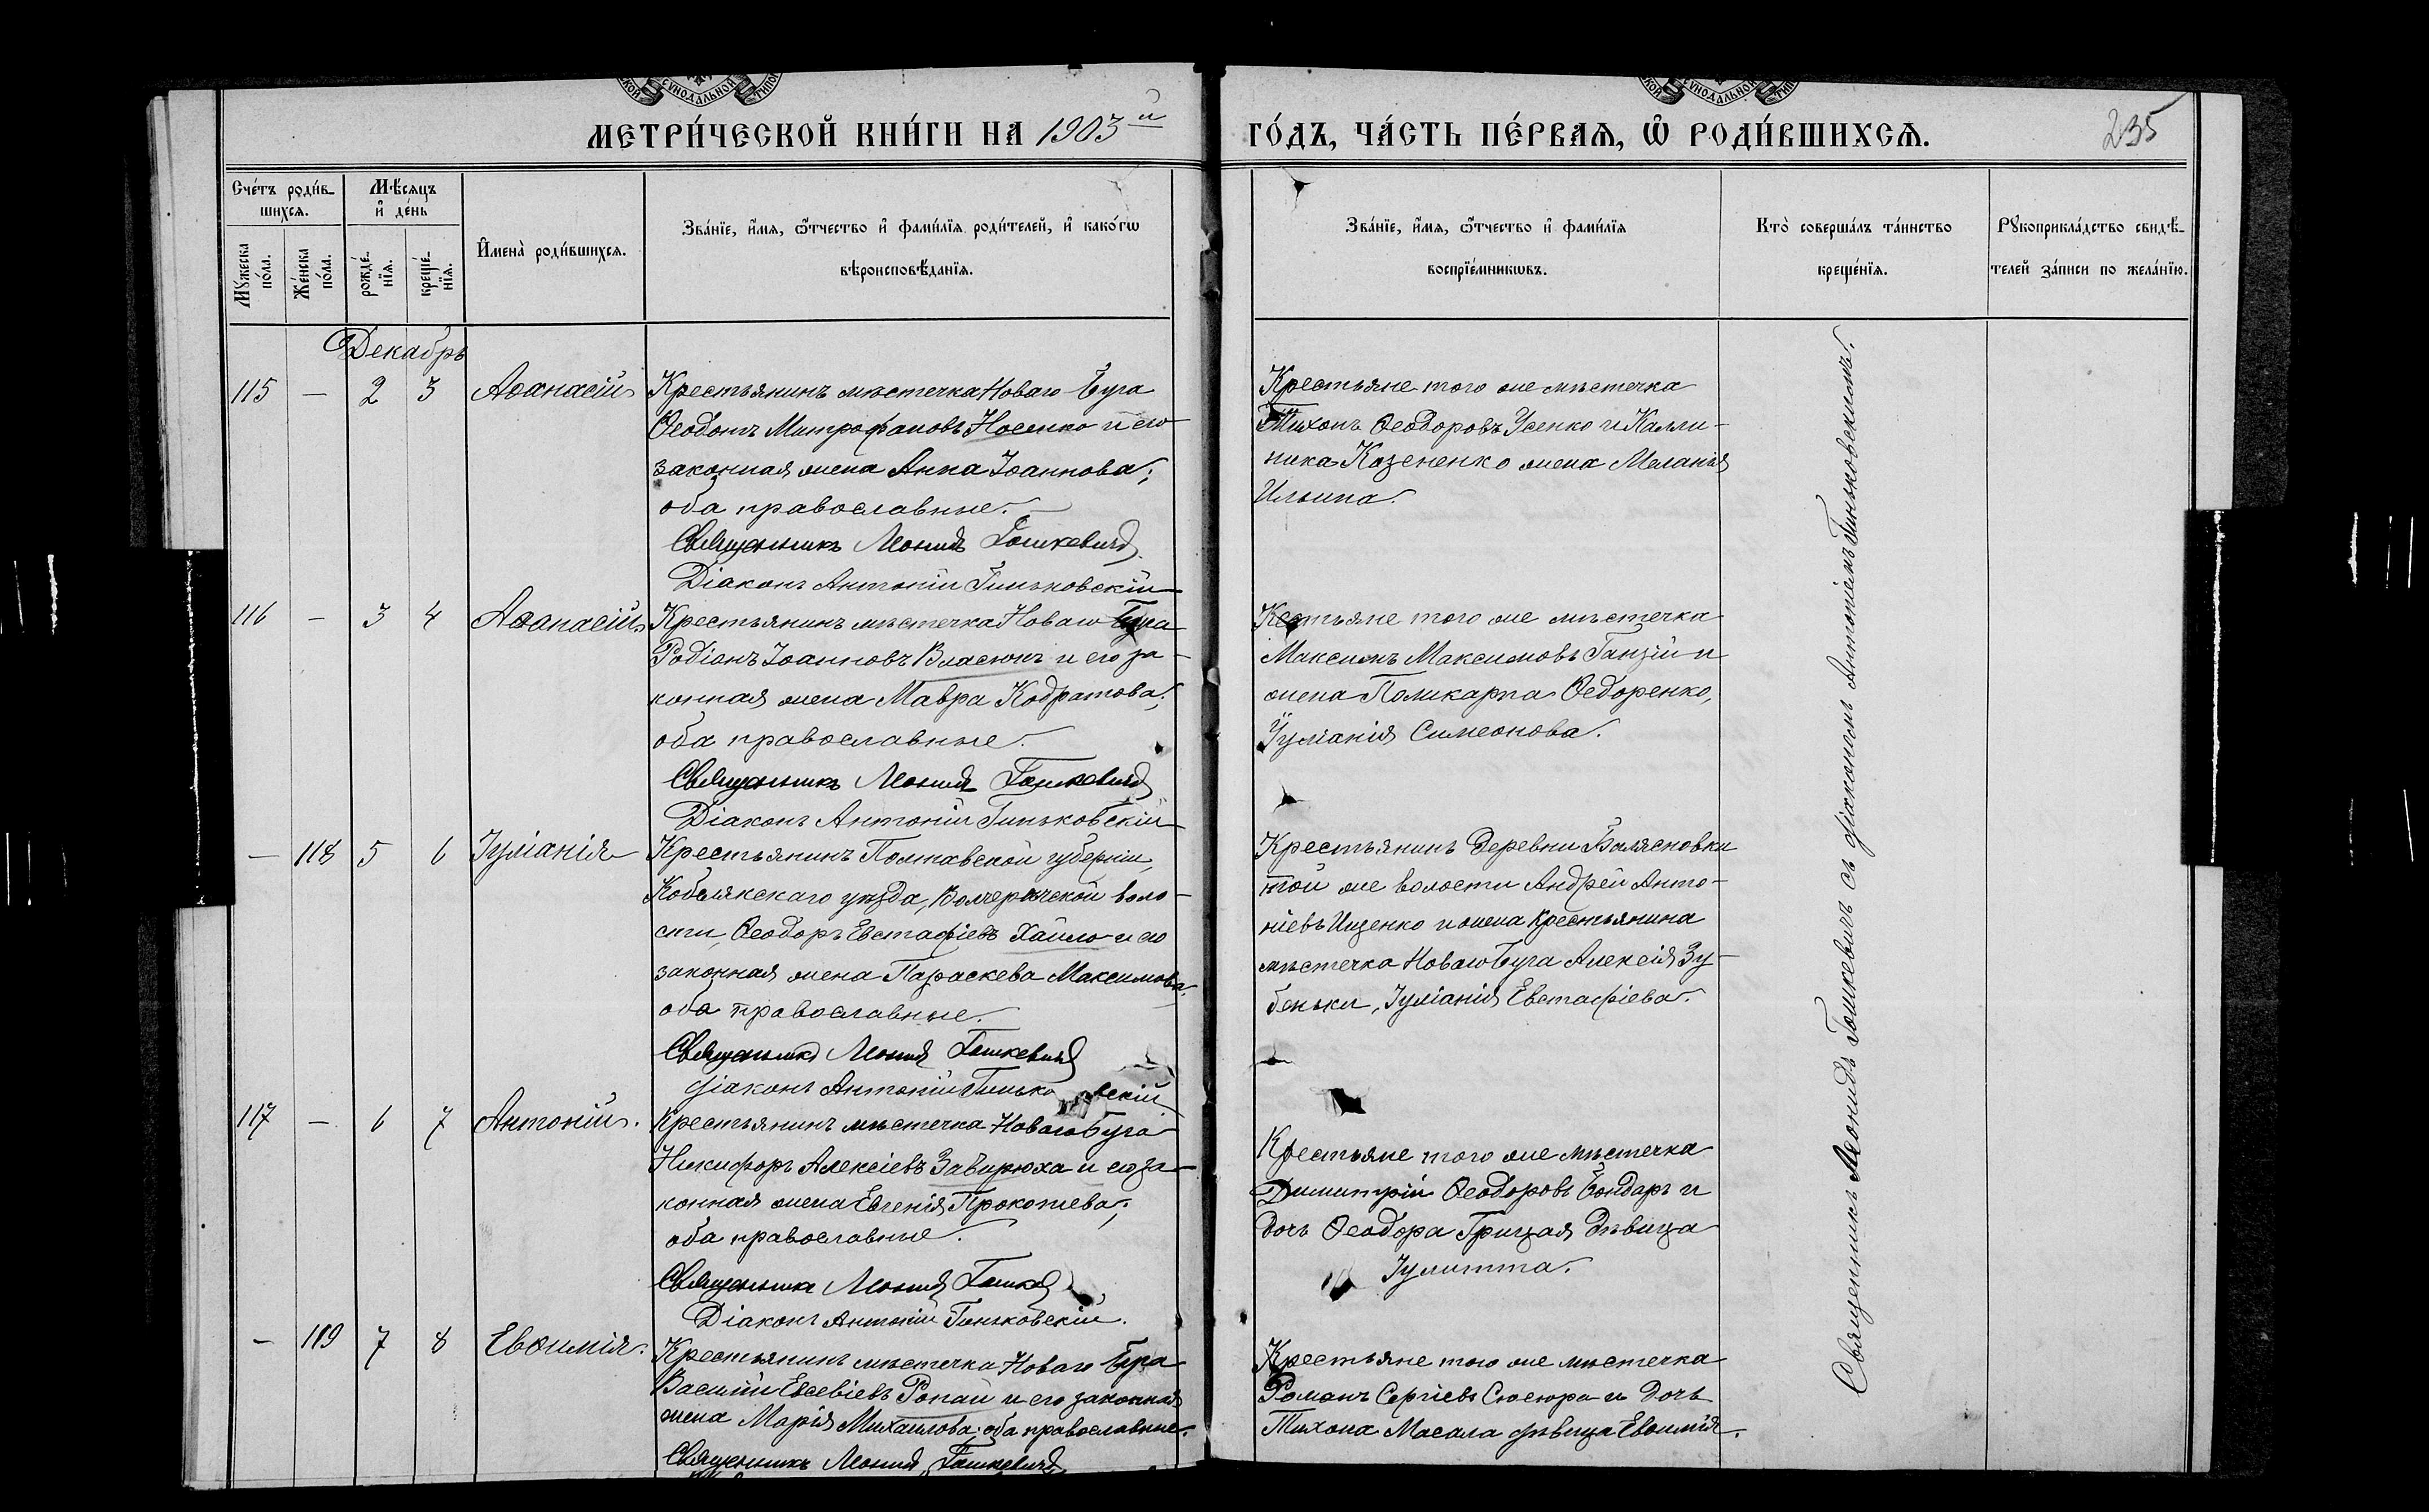 МЕТРИ́ЧЕСКОЙ КНИ́ГИ НА 1903й
ГО́ДЪ, ЧА́СТЬ ПЕ́РВАЯ, Ѡ РОДИ́ВШИХСЯ.
235
Сче́тъ роди́в-
шихся.
Мѣ́сяцъ
и де́нь
Мꙋ́жеска
по́ла.
Же́нска
по́ла.
рожде́-
нїя.
креще́-
нїя.
Имена̀ роди́вшихся.
Зва́нїе, и́мя, ѻ́тчество и фами́лїя роди́телей, и како́гѡ
вѣроисповѣ́данїя.
Зва́нїе, и́мя, ѻ́тчество и фами́лїя
воспрїе́мникѡвъ.
Кто̀ соверша́лъ та́инство
креще́нїя.
Рꙋкоприкла́дство свидѣ́-
телей за́писи по жела́нїю.
Декабрь
115 — 2 3 Аѳанасій
Крестьянинъ мѣстечка Новаго Буга
Ѳеодотъ Митрофановъ Носенко и его
законная жена Анна Іоаннова;
оба православные.
Священникъ Леонидъ Гошкевичъ
Діаконъ Антоній Гиньковскій
Крестьяне того же мѣстечка
Тихонъ Ѳеодоровъ Усенко и Калли-
ника Козененко жена Меланія
Ильина.
116 — 3 4 Аѳанасій
Крестьянинъ мѣстечка Новаго Буга
Родіонъ Іоанновъ Власюкъ и его за-
конная жена Мавра Кодратова;
оба православные.
Священникъ Леонидъ Гошкевичъ
Діаконъ Антоній Гиньковскій
Кестьяне того же мѣстечка
Максимъ Максимовъ Ганзій и
жена Поликарпа Ѳедоренко,
Іуліанія Симеонова.
— 118 5 6 Іуліанія
Крестьянинъ Полтавской губерніи,
Кобелякскаго уѣзда, Волчерѣчской воло-
сти, Ѳеодоръ Евстафіевъ Хайло и его
законная жена Параскева Максимова
оба православные.
Священникъ Леонидъ Гошкевичъ
Діаконъ Антоній Гиньковскій
Крестьянинъ деревни Балясновки
той же волости Андрей Анто-
ніевъ Ищенко и жена крестьянина
мѣстечка Новаго Буга Алексія Зу-
беньки, Іуліанія Евстафіева.
117 — 6 7 Антоній.
Крестьянинъ мѣстечка Новаго Буга
Никифоръ Алексіевъ Завирюха и его за-
конная жена Евгенія Прокопіева;
оба православные.
Священникъ Леонидъ
Діаконъ Антоній Гиньковскій.
Крестьяне того же мѣстечка
Димитрій Ѳеодоровъ Бондарь и
дочь Ѳеодора Грицая дѣвица
Іулитта.
— 119 7 8 Евѳимія.
Крестьянинъ мѣстечка Новаго Буга
Василій Евсевіевъ Ропай и его законная
жена Марія Михаилова; оба православные.
Священникъ Леонидъ Гошкевичъ
Крестьяне того же мѣстечка
Романъ Сергіевъ Сюсюра и дочь
Тихона Масала дѣвица Евѳимія.
Священникъ Леонидъ Гошкевичъ съ діакономъ Антоніемъ Гиньковскимъ.